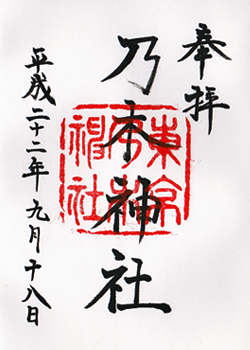 奉拝
乃木神社
平成二十二年九月十八日
東京
乃木
神社